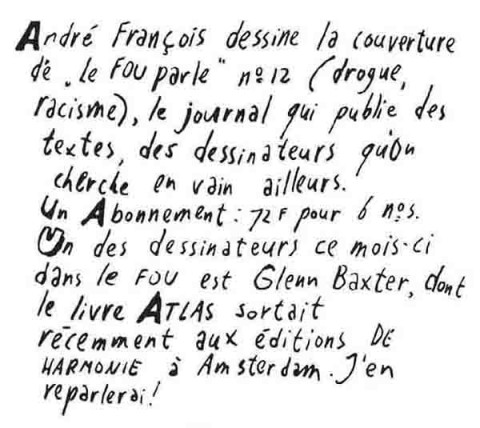 André François dessine la couverture
de „le FOU parle" nº 12 (drogue,
racisme), le journal qui publie des
textes, des dessinateurs qu'on
cherche en vain ailleurs.
Un Abonnement : 72 F pour 6 nos.
Un des dessinateurs ce mois-ci
dans le FOU est Glenn Baxter, dont
le livre ATLAS sortait
récemment aux éditions DE
HARMONIE à Amsterdam. J'en
reparlerai!